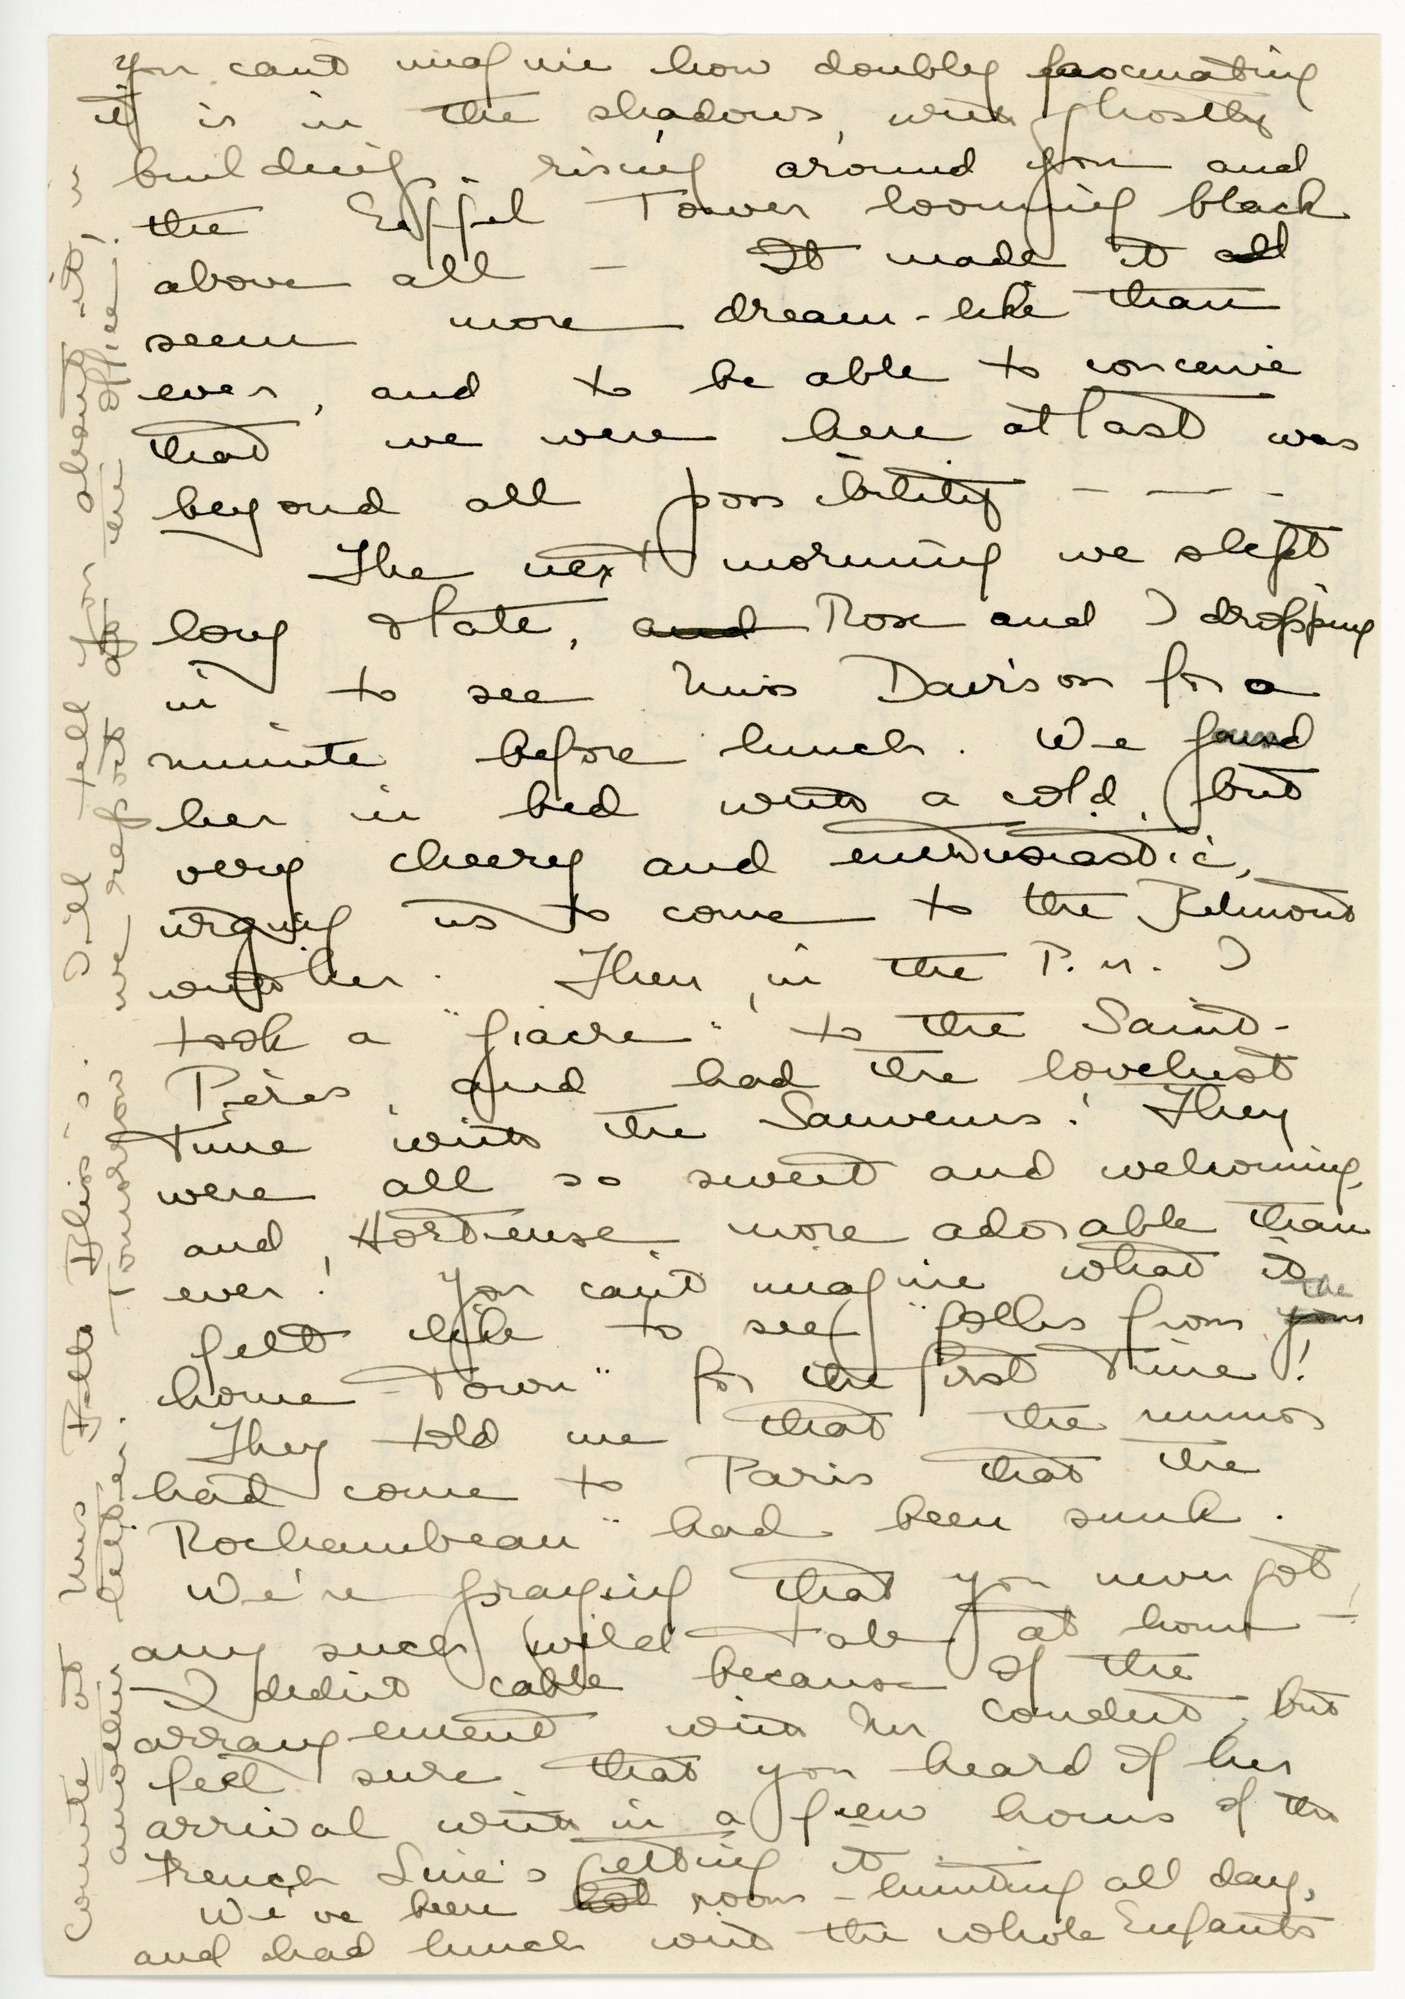 you can't imagine how doubly fascinating
it is in the shadows, with ghostly
buildings rising around you and
the Eiffel Tower looming black
above all – It made it all
seem more dream-like than
ever, and to be able to conceive
that we were here at last was
beyond all possibility – — -
The next morning we slept
long & late, and Rose and I dropping
in to see Miss Davison for a
minute before lunch. We found
her in bed with a cold, but
very cheery and enthusiastic,
urging us to come to the Belmont
with her. Then, in the P.M. I
took a "fiacre" to the Saint-
Pères, and had the loveliest
time with the Sauvenis! They
were all so sweet and welcoming,
and Hortense more adorable than
ever! You can't imagine what it
felt like to see "folks from your the
home-town" for the first time!
They told me that the rumor
had come to Paris that the
Rochambeau" had been sunk.
We're praying that you never got
any such wild tale at home –!
I didn't cable because of the
arrangement with Mr Conduit, but
feel sure that you heard of her
arrival within a few hours of the
French Line's getting it.
We've been hot room-hunting all day,
and had lunch with the whole Enfants
Comité at Miss Bliss's. I'll tell you about it, in
another letter. Tomorrow we report at office!